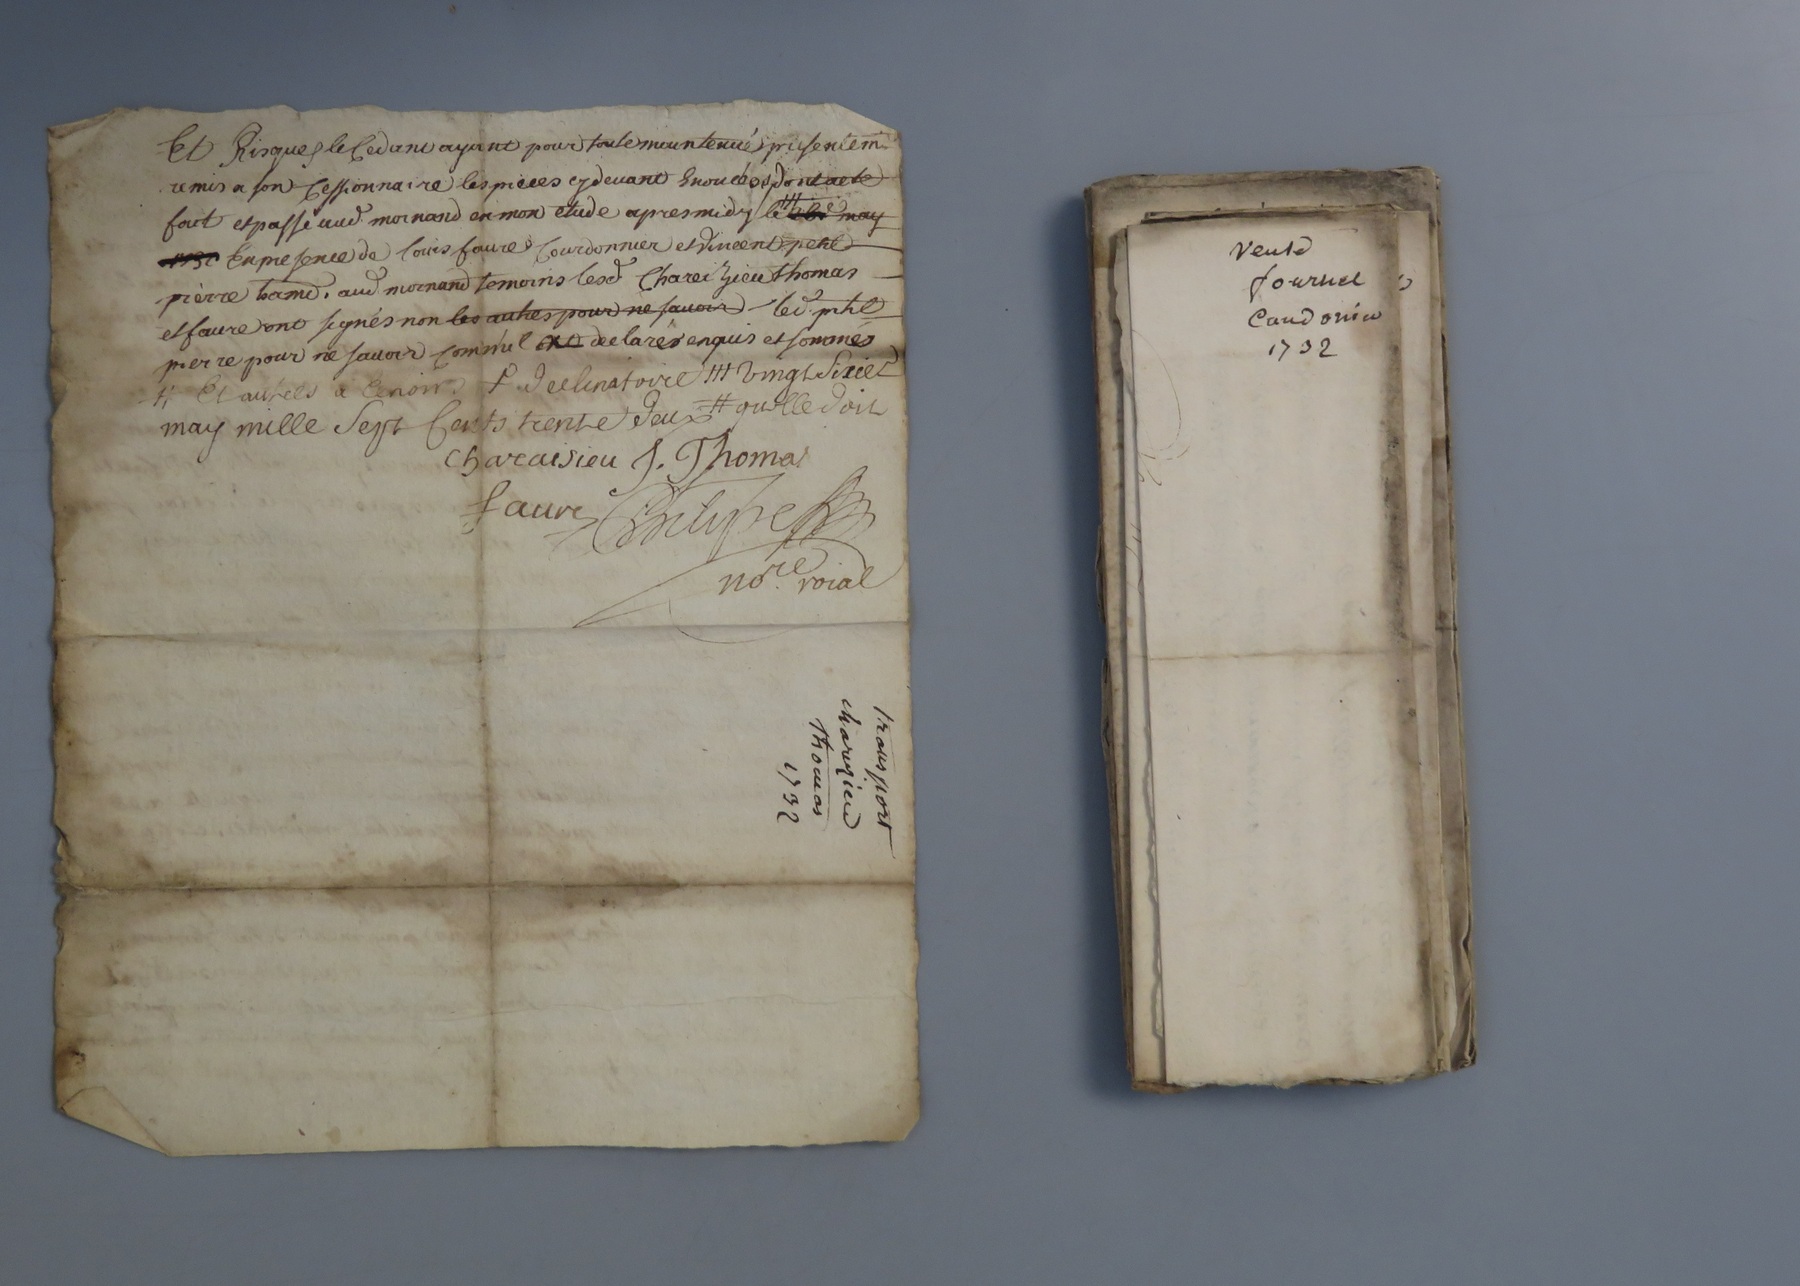 Et Risques le Cedant ayant pour toute maintenue presentem.
remis a son Cessionnaire les pieces cy devant Enoncées dont acte
fait et passé aud. mornand en mon etude apres midy le /// may
En presence de louis faure Courdonnier et Vincent petit
pierre aud. mornand temoins lesd. Chareizieu thomas
et faure ont signés non les autres pour ne savoir led. petit
pierre pour ne savoir Comm'il declarés enquis et sommés
# Et autres a declinatoire /// vingt Sixie.
may mille Sept Cents trente deux # quelle doit
charaisieu J. Thomas
faure
no.re roial
transport
charezieu
Thomas
1732
Vente
fournel
Caudonin
1732